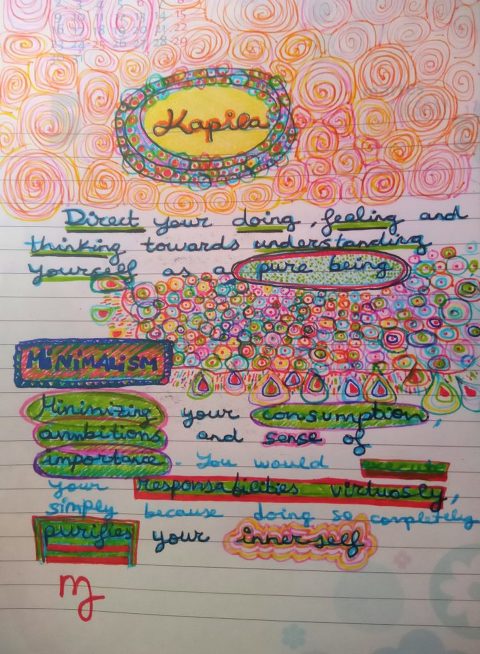 Kapila
Direct your doing, feeling and
thinking towards understanding
yourself as a pure being
MiNiMALiSM
Minimizing your consumption,
ambitions and sense of
importance. You would
your responsabilities virtuosly,
simply because doing so completely
purifies your inner self